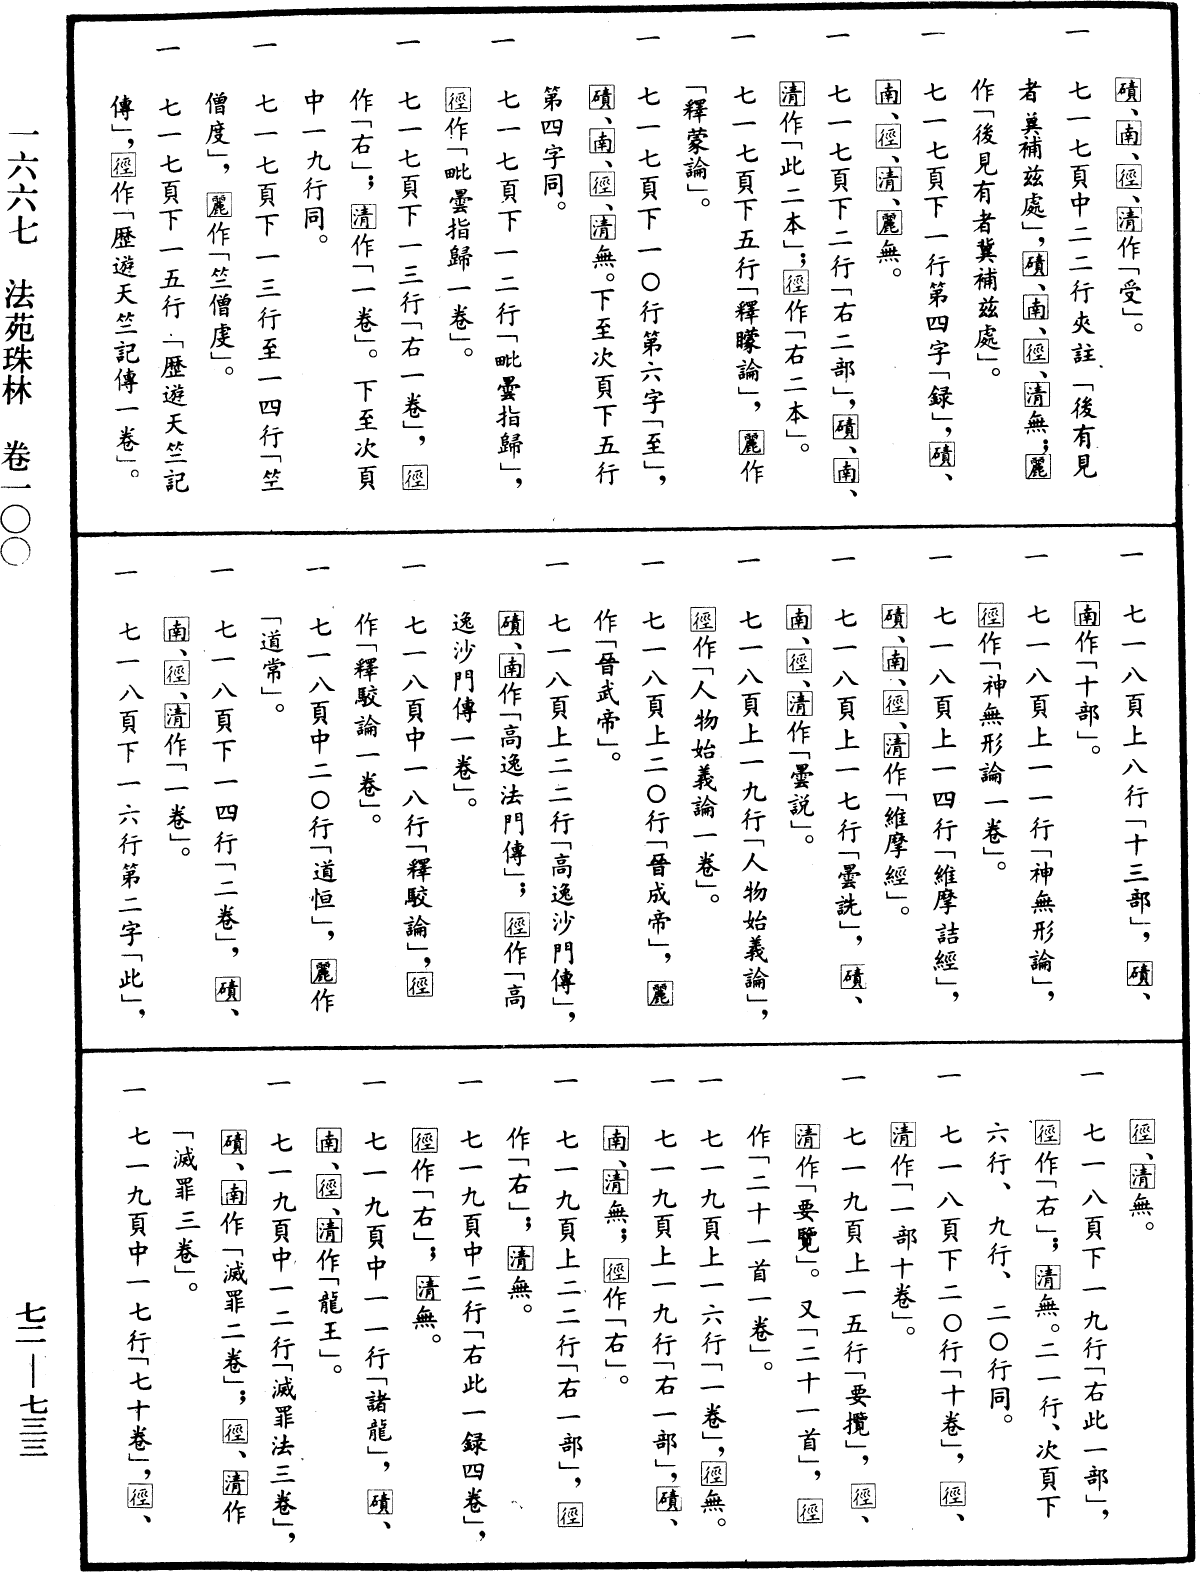 磧、南、徑、清作「受」。
一 七一七頁中二二行夾註「後有見
者冀補兹處」，磧、南、徑、清無；麗
作「後見有者冀補兹處」。
一 七一七頁下一行第四字「録」，磧、
南、徑、清、麗無。
一 七一七頁下二行「右二部」，磧、南、
清作「此二本」；徑作「右二本」。
一 七一七頁下五行「釋矇論」，麗作
「釋蒙論」。
一 七一七頁下一〇行第六字「至」，
磧、南、徑、清無。下至次頁下五行
第四字同。
一 七一七頁下一二行「毗曇指歸」，
徑作「毗曇指歸一卷」。
一 七一七頁下一三行「右一卷」，徑
作「右」；清作「一卷」。下至次頁
中一九行同。
一 七一七頁下一三行至一四行「竺
僧度」，麗作「竺僧虔」。
一 七一七頁下一五行「歷遊天竺記
傳」，徑作「歷遊天竺記傳一卷」。
一 七一八頁上八行「十三部」，磧、
南作「十部」。
一 七一八頁上一一行「神無形論」，
徑作「神無形論一卷」。
一 七一八頁上一四行「維摩詰經」，
磧、南、徑、清作「維摩經」。
一 七一八頁上一七行「曇詵」，磧、
南、徑、清作「曇説」。
一 七一八頁上一九行「人物始義論」，
徑作「人物始義論一卷」。
一 七一八頁上二〇行「晉成帝」，麗
作「晉武帝」。
一 七一八頁上二二行「高逸沙門傳」，
磧、南作「高逸法門傳」；徑作「高
逸沙門傳一卷」。
一 七一八頁中一八行「釋駮論」，徑
作「釋駮論一卷」。
一 七一八頁中二〇行「道恒」，麗作
「道常」。
一 七一八頁下一四行「二卷」，磧、
南、徑、清作「一卷」。
一 七一八頁下一六行第二字「此」，
徑、清無。
一 七一八頁下一九行「右此一部」，
徑作「右」；清無。二一行、次頁下
六行、九行、二〇行同。
一 七一八頁下二〇行「十卷」，徑、
清作「一部十卷」。
一 七一九頁上一五行「要攬」，徑、
清作「要覽」。又「二十一首」，徑
作「二十一首一卷」。
一 七一九頁上一六行「一卷」，徑無。
一 七一九頁上一九行「右一部」，磧、
南、清無；徑作「右」。
一 七一九頁上二二行「右一部」，徑
作「右」；清無。
一 七一九頁中二行「右此一録四卷」，
徑作「右」；清無。
一 七一九頁中一一行「諸龍」，磧、
南、徑、清作「龍王」。
一 七一九頁中一二行「滅罪法三卷」，
磧、南作「滅罪二卷」；徑、清作
「滅罪三卷」。
一 七一九頁中一七行「七十卷」，徑、
一六六七 法苑珠林 卷一〇〇
七二—七三三